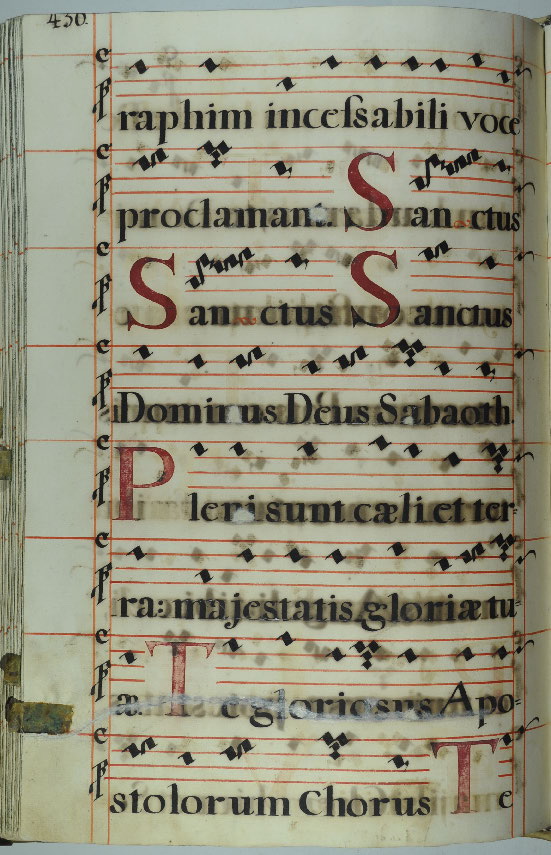 430.
raphim inceſsabili voce
proclamant. San ctus
San ctus Sanctus
Dominus Deus Sabaoth.
Pleni sunt cæli et ter-
ra: majestatis gloriæ tu-
æ Te gloriosus Apo-
stolorum Chorus Te